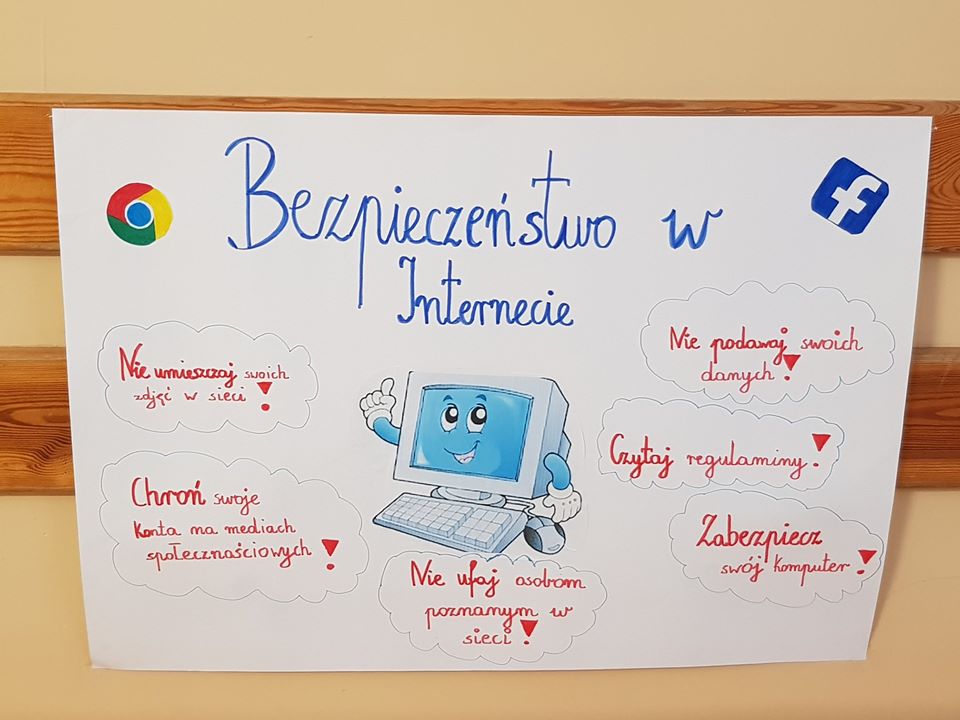 Bezpieczeństwo w
Internecie
Nie umieszczaj swoich
zdjęć w sieci!
Chroń swoje
konta na mediach
społecznościowych!
Nie ufaj osobom
poznanym w
sieci!
Nie podawaj swoich
danych!
Czytaj regulaminy!
Zabezpiecz
swój komputer!
f